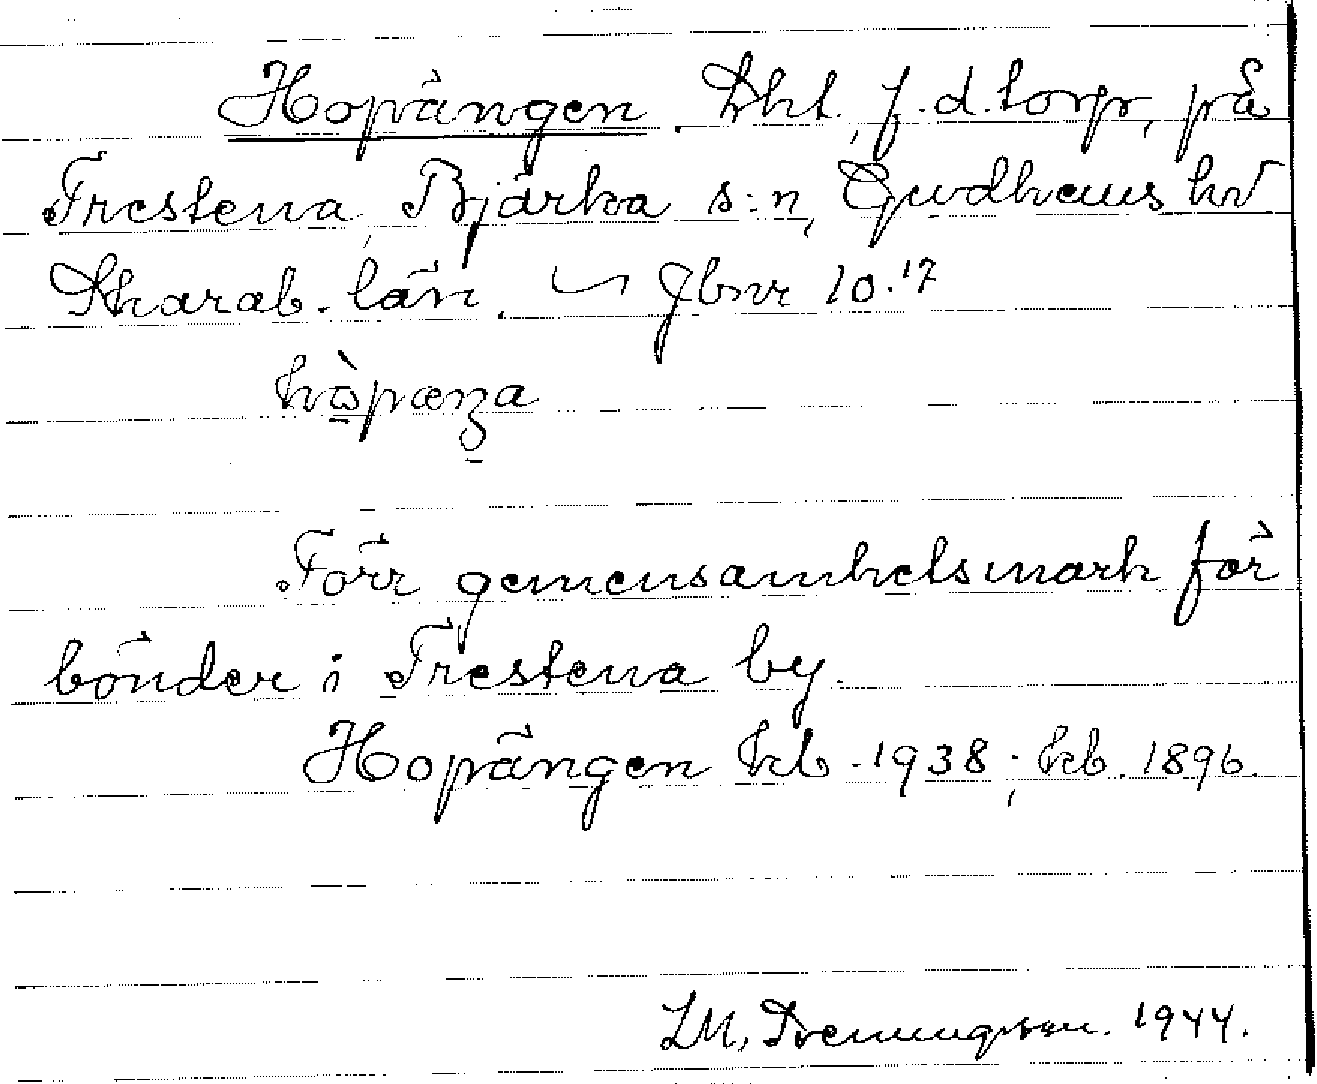 Hopängen. Lht., f.d. torp, på
Trestena, Bjärka s:n, Gudhems hd
Skarab. län. Jbnr 10.17
Förr gemensamhetsmark för
bönder i Trestena by.
Hopängen kb. 1938; kb. 1896.
LM, 1944.